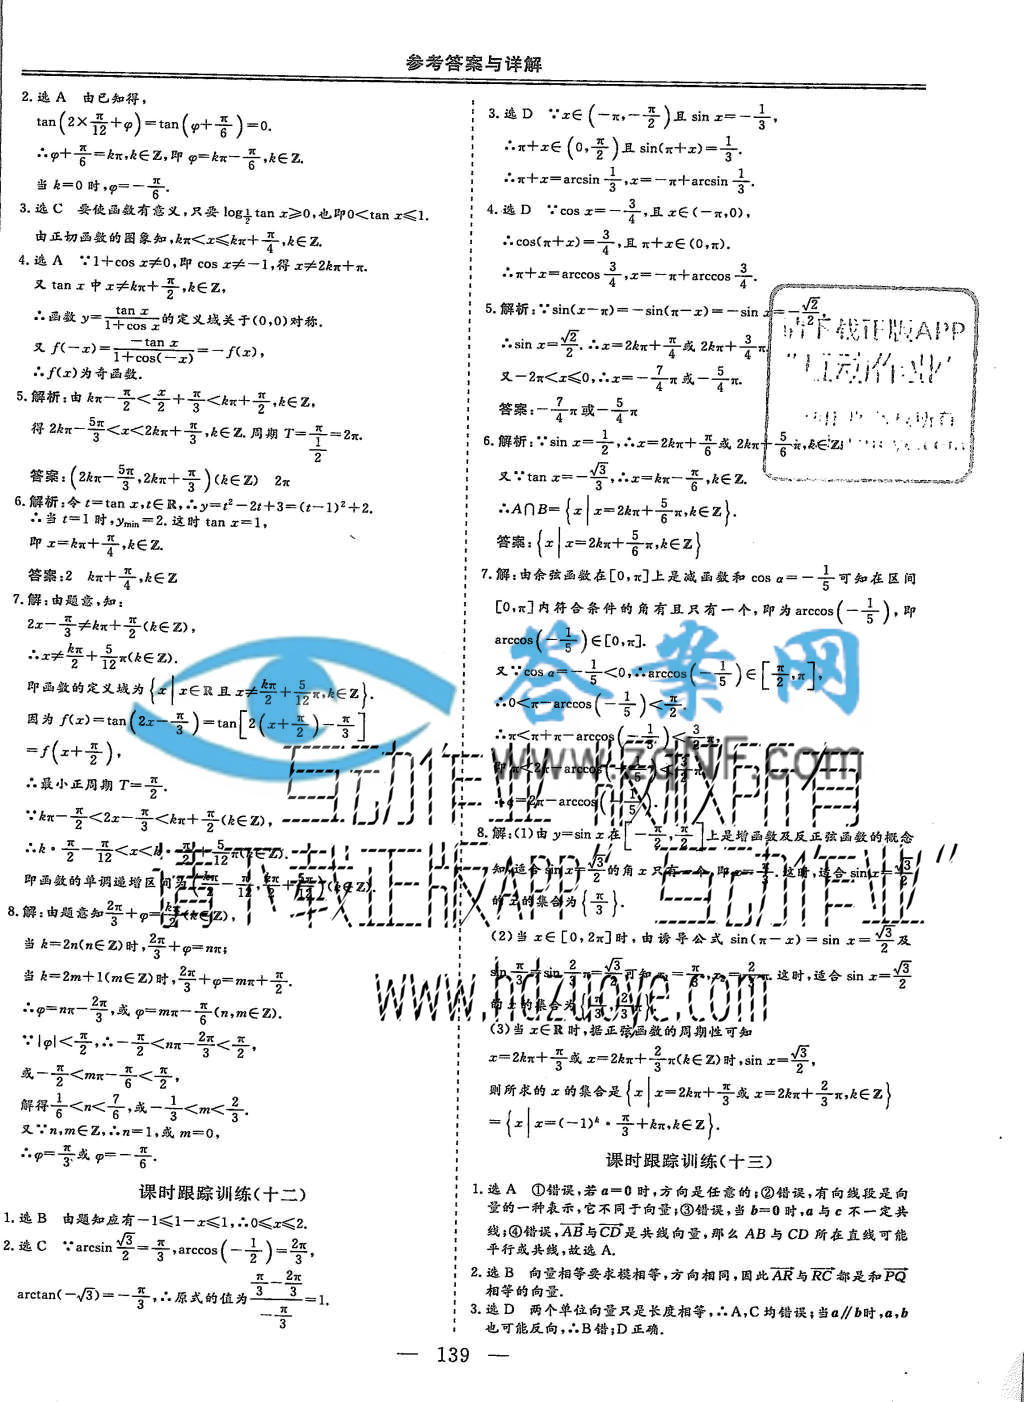 参考答案与详解
2.选A 由已知得,
tan(2×π/12+φ)=tan(φ+π/6)=0.
∴φ+π/6=kπ,k∈Z,即φ=kπ-π/6,k∈Z.
当k=0时,φ=-π/6.
3.选C 要使函数有意义,只要log½tan x≥0,也即0<tan x≤1.
由正切函数的图象知,kπ<x≤kπ+π/4,k∈Z.
4.选A ∵1+cos x≠0,即cos x≠-1,得x≠2kπ+π.
又tan x中x≠kπ+π/2,k∈Z,
∴函数y=tan x/(1+cos x)的定义域关于(0,0)对称.
又f(-x)=-tan x/(1+cos(-x))=-f(x),
∴f(x)为奇函数.
5.解析:由kπ-π/2<x/2+π/3<kπ+π/2,k∈Z,
得2kπ-5π/3<x<2kπ+π/3,k∈Z.周期T=π/(1/2)=2π.
答案:(2kπ-5π/3,2kπ+π/3)(k∈Z) 2π
6.解析:令t=tan x,t∈R,∴y=t²-2t+3=(t-1)²+2.
∴当t=1时,ymin=2.这时tan x=1,
即x=kπ+π/4,k∈Z.
答案:2 kπ+π/4,k∈Z
7.解:由题意,知:
2x-π/3≠kπ+π/2(k∈Z),
∴x≠kπ/2+5/12π(k∈Z).
即函数的定义域为{x|x∈R且x≠kπ/2+5/12π,k∈Z}.
因为f(x)=tan(2x-π/3)=tan[2(x+π/2)-π/3]
=f(x+π/2),
∴最小正周期T=π/2.
∵kπ-π/2<2x-π/3<kπ+π/2(k∈Z),
∴k·π/2-π/12<x<k·π/2+5/12π(k∈Z).
即函数的单调递增区间为(kπ/2-π/12,kπ/2+5π/12)(k∈Z).
8.解:由题意知2π/3+φ=kπ/2(k∈Z),
当k=2n(n∈Z)时,2π/3+φ=nπ;
当k=2m+1(m∈Z)时,2π/3+φ=mπ+π/2.
∴φ=nπ-2π/3,或φ=mπ-π/6(n,m∈Z).
∵|φ|<π/2,∴-π/2<nπ-2π/3<π/2,
或-π/2<mπ-π/6<π/2,
解得1/6<n<7/6,或-1/3<m<2/3.
又∵n,m∈Z,∴n=1,或m=0,
∴φ=π/3或φ=-π/6.
课时跟踪训练(十二)
1.选B 由题知应有-1≤1-x≤1,∴0≤x≤2.
2.选C ∵arcsin√3/2=π/3,arccos(-1/2)=2π/3,
arctan(-√3)=-π/3,∴原式的值为(π/3-2π/3)/(-π/3)=1.
3.选D ∵x∈(-π,-π/2)且sin x=-1/3,
∴π+x∈(0,π/2)且sin(π+x)=1/3.
∴π+x=arcsin 1/3,x=-π+arcsin 1/3.
4.选D ∵cos x=-3/4,且x∈(-π,0),
∴cos(π+x)=3/4,且π+x∈(0,π).
∴π+x=arccos 3/4,x=-π+arccos 3/4.
5.解析:∵sin(x-π)=-sin(π-x)=-sin x=-√2/2,
∴sin x=√2/2.∴x=2kπ+π/4或2kπ+3/4π.
又-2π<x≤0,∴x=-7/4π或-5/4π.
答案:-7/4π或-5/4π
6.解析:∵sin x=1/2,∴x=2kπ+π/6或2kπ+5/6π,k∈Z
又∵tan x=-√3/3,∴x=kπ-π/6,k∈Z.
∴A∩B={x|x=2kπ+5/6π,k∈Z}.
答案:{x|x=2kπ+5/6π,k∈Z}
7.解:由余弦函数在[0,π]上是减函数和cos α=-1/5可知在区间
[0,π]内符合条件的角有且只有一个,即为arccos(-1/5),即
arccos(-1/5)∈[0,π].
又∵cos α=-1/5<0,∴arccos(-1/5)∈[π/2,π],
∴0<π-arccos(-1/5)<π/2.
∴π<π+π-arccos(-1/5)<3/2π,
即π<2π-arccos(-1/5)<3/2π
∴α=2π-arccos(-1/5).
8.解:(1)由y=sin x在[-π/2,π/2]上是增函数及反正弦函数的概念
知,适合sin x=√3/2的角x只有一个,即x=π/3.这时,适合sin x=√3/2
的x的集合为{π/3}.
(2)当x∈[0,2π]时,由诱导公式sin(π-x)=sin x=√3/2及
sin π/3=sin 2/3π=√3/2可知x₁=π/3,x₂=2π/3.这时,适合sin x=√3/2
的x的集合为{π/3,2π/3}.
(3)当x∈R时,据正弦函数的周期性可知
x=2kπ+π/3或x=2kπ+2/3π(k∈Z)时,sin x=√3/2,
则所求的x的集合是{x|x=2kπ+π/3或x=2kπ+2/3π,k∈Z}
={x|x=(-1)ᵏ·π/3+kπ,k∈Z}.
课时跟踪训练(十三)
1.选A ①错误,若a=0时,方向是任意的;②错误,有向线段是向
量的一种表示,它不同于向量;③错误,当b=0时,a与c不一定共
线;④错误,AB与CD是共线向量,那么AB与CD所在直线可能
平行或共线,故选A.
2.选B 向量相等要求模相等,方向相同,因此AR与RC都是和PQ
相等的向量.
3.选D 两个单位向量只是长度相等,∴A,C均错误;当a∥b时,a,b
也可能反向,∴B错;D正确.
— 139 —
请下载正版APP
"互动作业"
答案网
www.zqNF.com
互动作业 版权所有
请下载正版APP"互动作业"
www.hdzuoye.com